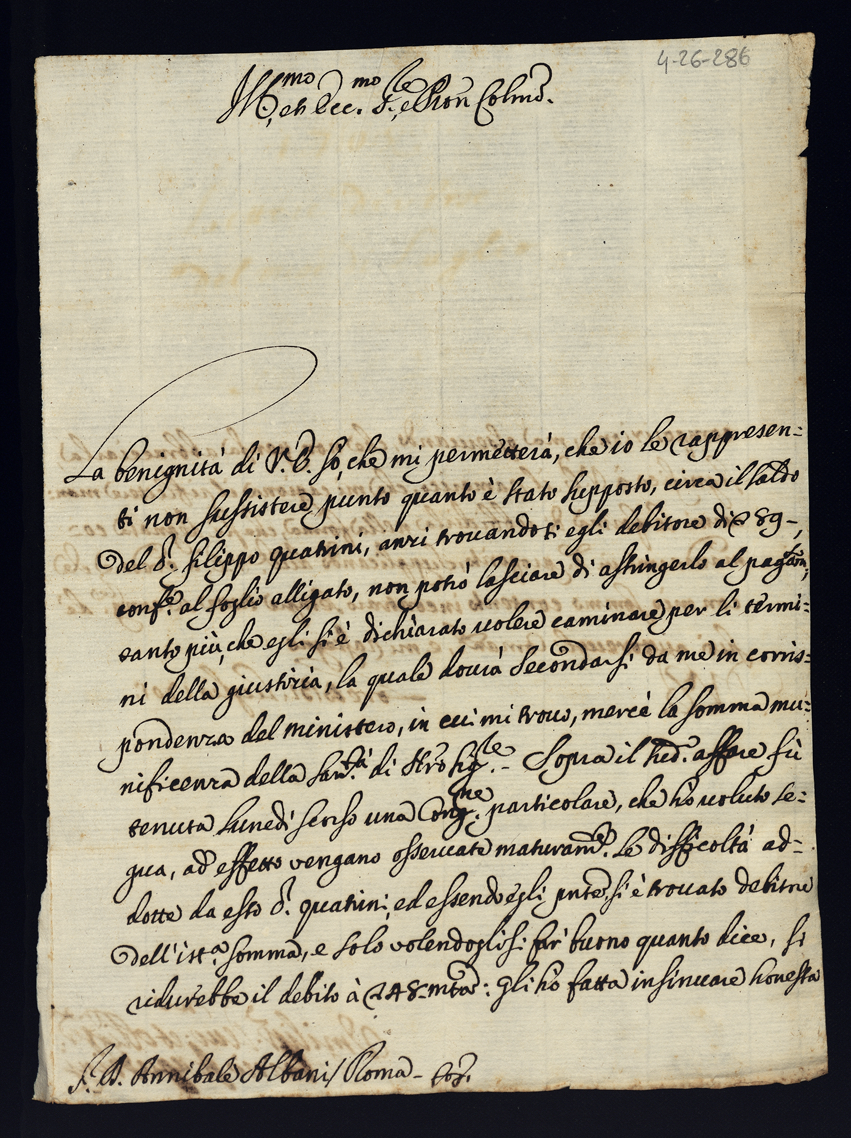 4-26-286
Ill.mo, et Ecc.mo S.re, e Pron Colmo.
La benignità di V.E. so, che mi permetterà, che io le rappresen=
ti non sussistere punto quanto è stato supposto, circa il saldo
del S. Filippo Quatrini, anzi trovandosi egli debitore di 289-,
conf.e al foglio alligato, non potrò lasciare di astringerlo al pagam.to,
tanto più, che egli si è dichiarato volere caminare per li termi=
ni della giustizia, la quale dovrà secondarsi da me in corris=
pondenza del ministero, in cui mi trovo, mercè la somma mu=
nificenza della San.tà di Nro Sig.re - Sopra il sud.o affare fù
tenuta Lunedì scorso una Cong.ne particolare, che hò voluto se=
gua, ad effetto vengano osservate maturam.te le difficoltà ad=
dotte da esso S. Quatrini, ed essendo egli pnte, si è trovato debitore
dell'ist.a somma, e solo volendoglisi far buono quanto dice, si
ridurrebbe il debito à 248- mta: gli hò fatta insinuare honesta
S. D. Annibale Albani / Roma -